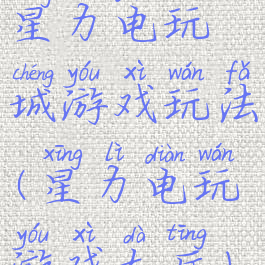 星力电玩
chéng yóu xì wán fǎ
城游戏玩法
xīng lì diàn wán
(星力电玩
yóu xì dà tīng
游戏大厅)